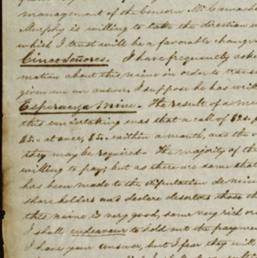 management of the concern Mr Camacho
Murphy is willing to take the direction
which I trust will be a favorable change
Cinco Señores. I have frequently asked
mation about this mine in order to
given me an answer I suppose he has
Esperanza Mine. The result of a
this undertaking was that a call of
at once, within a month, and the
they may be required. The majority of the
willing to pay; but as there are some that
has been made to the diputation de mine
shareholders and declare desertors those
this mine is very good, some very rich
I shall endeavour to hold out the
I have your answer, but I fear they will